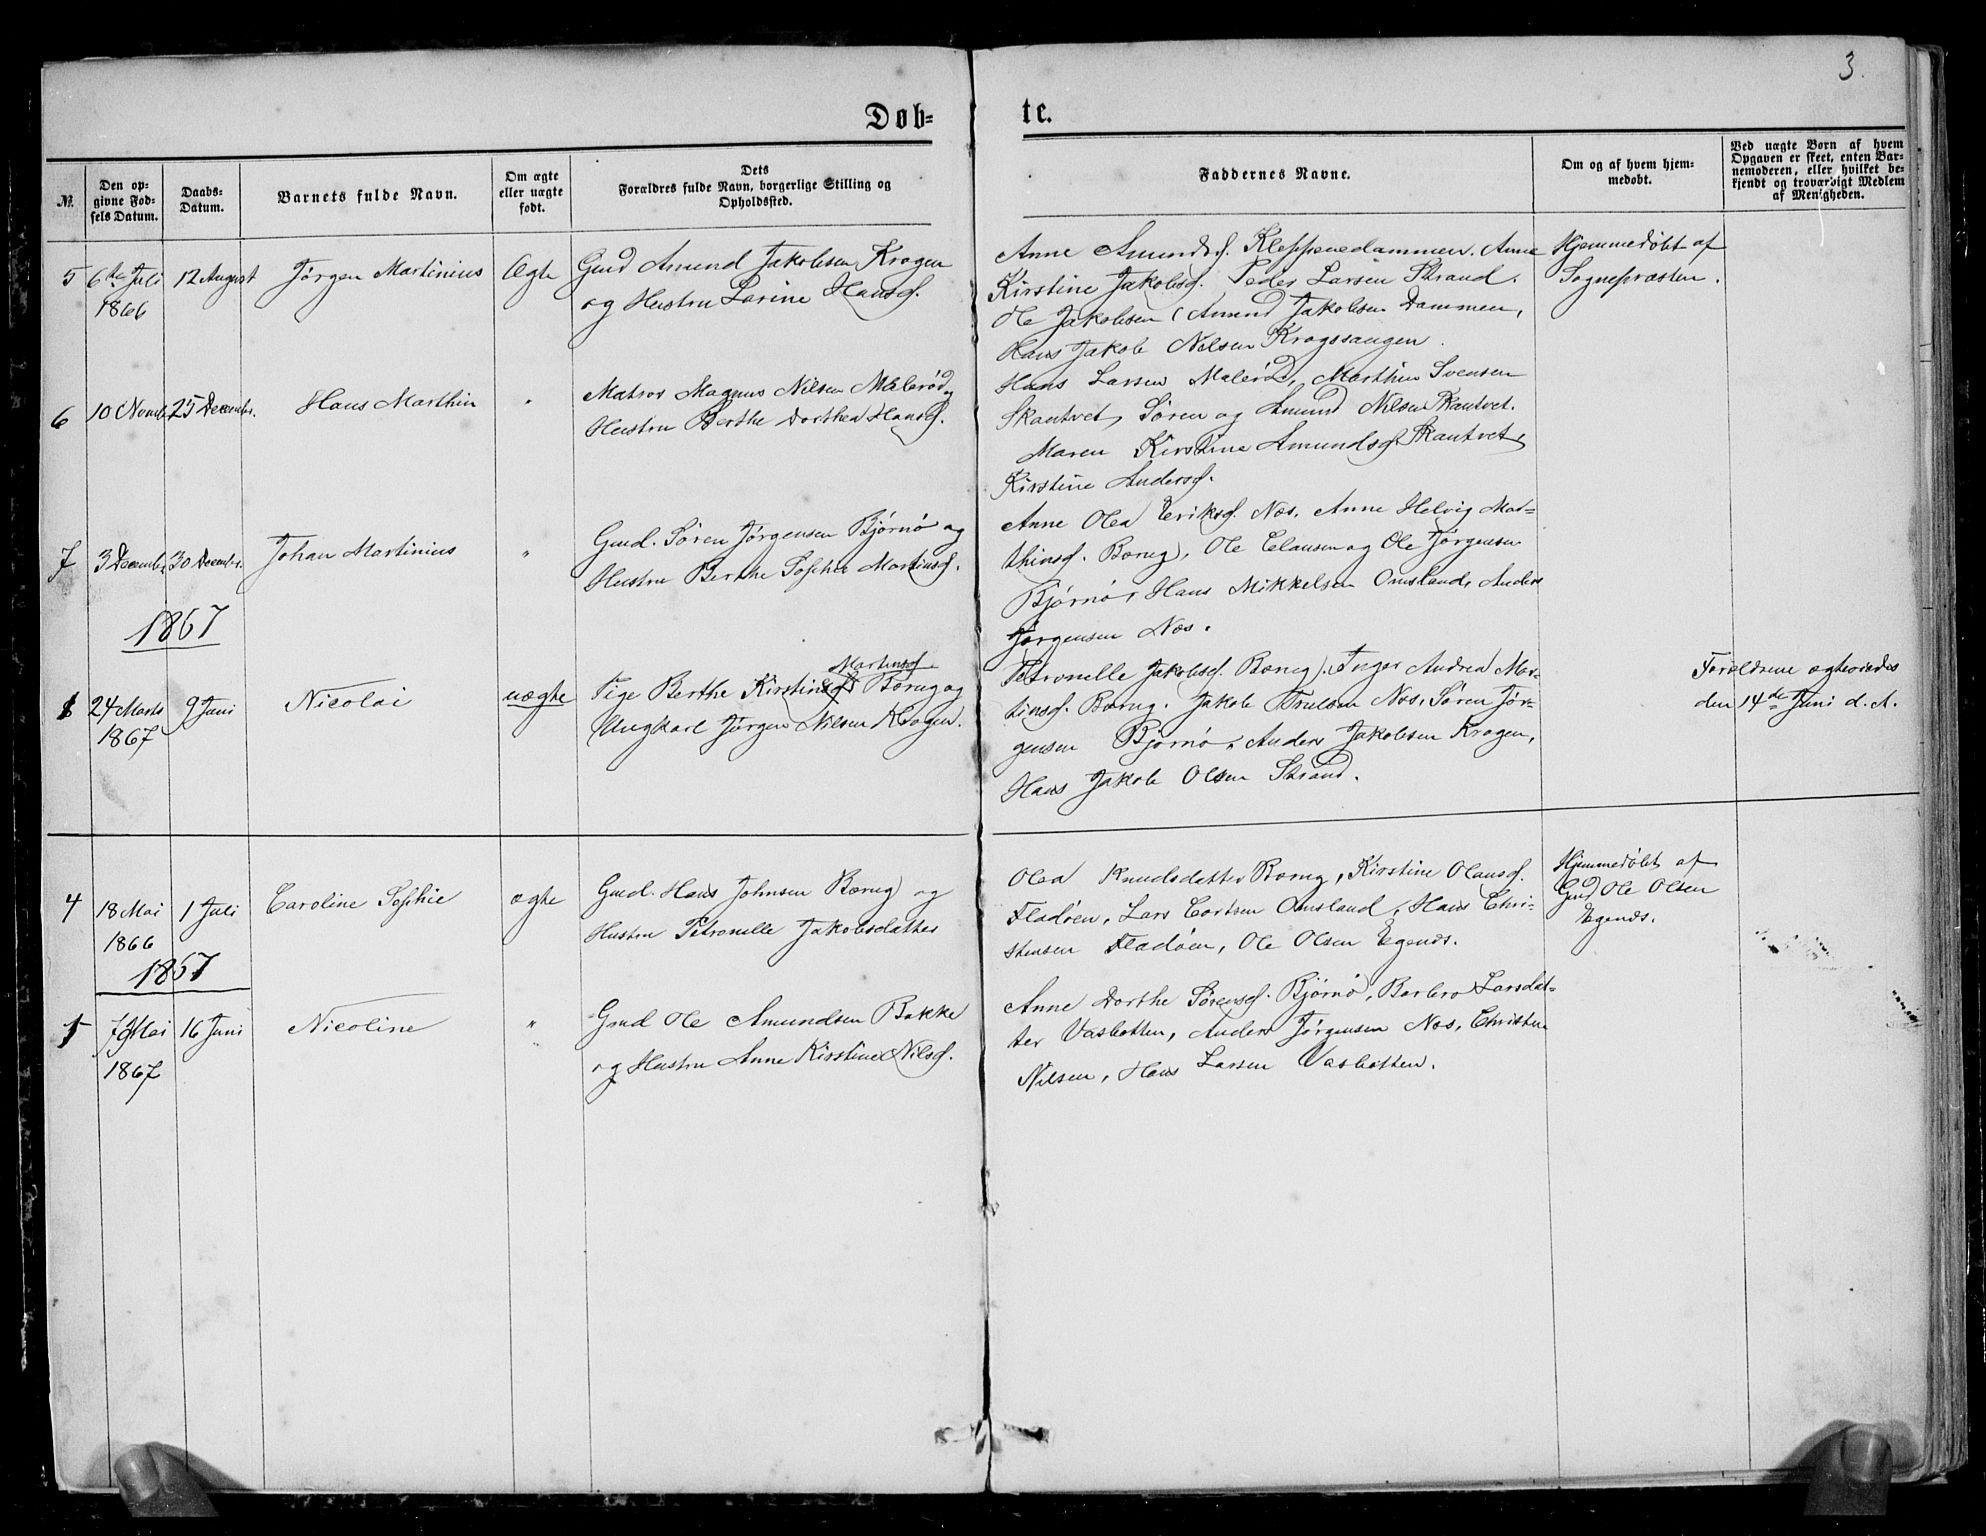 3.
Døb- te.
№.
Den opgivne Fødsels Datum.
Daabs-Datum.
Barnets fulde Navn.
Om ægte eller uægte født.
Dets Forældres fulde Navn, borgerlige Stilling og Opholdssted.
Faddernes Navne.
Om og af hvem hjemmedøbt.
Ved uægte Børn af hvem Opgaven er skeet, enten Barnemoderen, eller hvilket bekjendt og troværdigt Medlem af Menigheden.
5 6te Juli 1866 12 August Jørgen Martinius Ægte
Gmd Amund Jakobsen Krogen
og Hustru Larine Hansd.
Anne Amundsd. Kleppenedammen, Anne
Kirstine Jakobsd. Peder Larsen Strand.
Ole Jakobsen, Amund Jakobsen Dammen,
Hans Jakob Nilsen Krogssaugen.
Hjemmedøbt af
Sognepræsten.
6 10 Novmb. 25 December. Hans Marthin "
Matros Magnus Nilsen Mælerød og
Hustru Berthe Dorthea Hansd.
Hans Larsen Malerød, Marthin Svensen
Skautvet, Søren og Amund Nilsen Skautvet.
Maren Kirstine Amundsd Skautvet,
Kirstine Andersd.
7 3 December 30 December. Johan Martinius "
Gmd. Søren Jørgensen Bjørnø og
Hustru Berthe Sophie Martinsd.
Anne Olea Eriksd. Næs, Anne Helvig Mar-
thinsd. Barug, Ole Clausen og Ole Jørgensen
Bjørnø, Hans Mikkelsen Omsland, Anders
Jørgensen Næs.
1867
1 24 Marts 1867 9 Juni Nicolai uægte
Martinsd.
Pige Berthe Kirstine Barug og
Ungkarl Jørgen Nilsen Krogen.
Petronelle Jakobsd. Barug, Inger Andrea Mar-
tinsd. Barug. Jakob Truelsen Næs, Søren Jør-
gensen Bjørnø, Anders Jakobsen Krogen,
Hans Jakob Olsen Strand.
Forældrene ægteviedes
den 14de Juni d. A.
4 18 Mai 1866 1 Juli Caroline Sophie ægte
Gmd. Hans Johnsen Barug og
Hustru Petronelle Jakobsdatter
Olea Knudsdatter Barug, Kirstine Olausd.
Fladøen, Lars Cortsen Omsland, Hans Chri-
stensen Fladøen, Ole Olsen Egends.
Hjemmedøbt af
Gmd Ole Olsen
Egends.
1867
1 7de Mai 1867 16 Juni Nicoline "
Gmd Ole Amundsen Bakke
og Hustru Anne Kirstine Nilsd.
Anne Dorthe Sørensd. Bjørnø, Barbro Larsdat-
ter Vasbotten, Anders Jørgensen Næs, Christen
Nilsen, Hans Larsen Vasbotten.